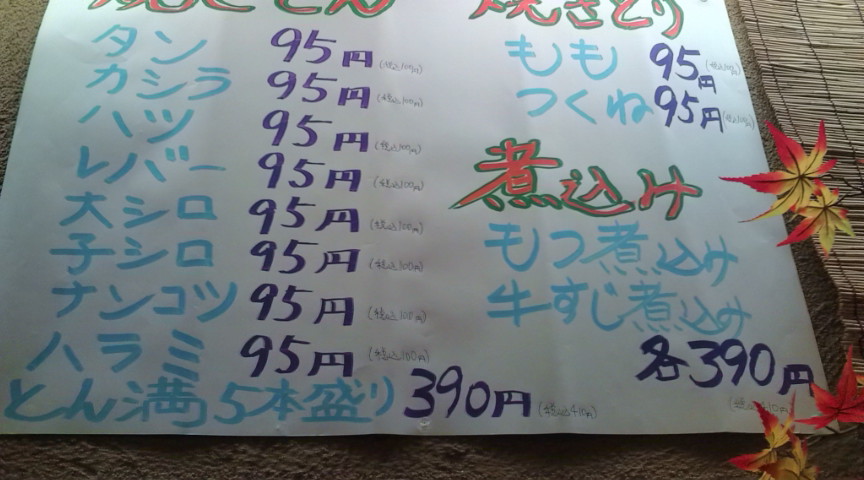 焼きとん
タン 95円 (税込100円)
カシラ 95円 (税込100円)
ハツ 95円 (税込100円)
レバー 95円 (税込100円)
大シロ 95円 (税込100円)
子シロ 95円 (税込100円)
ナンコツ 95円 (税込100円)
ハラミ 95円 (税込100円)
とん満5本盛り 390円 (税込410円)
焼きとり
もも 95円 (税込100円)
つくね 95円 (税込100円)
煮込み
もつ煮込み
牛すじ煮込み
各390円
(税込410円)